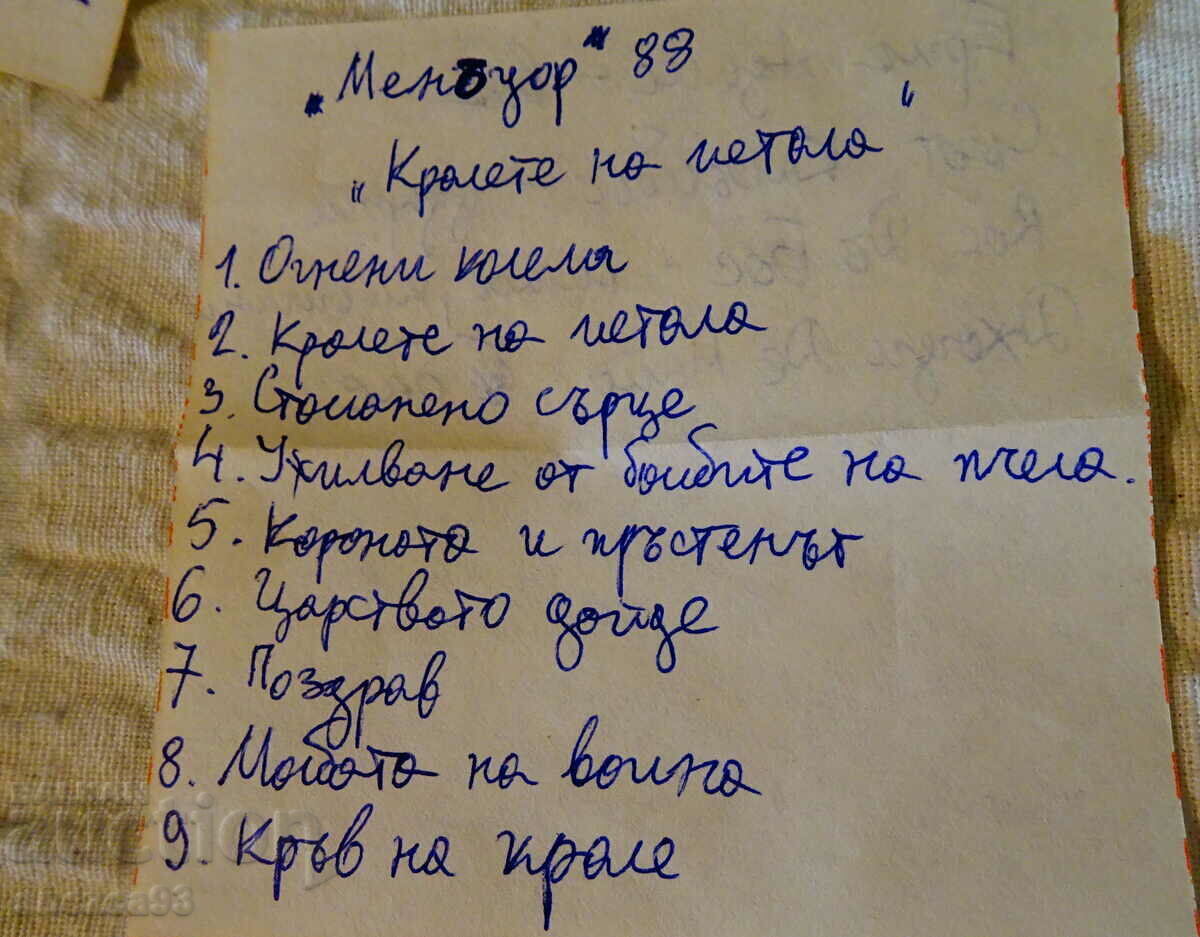 „Менъуор" 88
„Кралете на метала"
1. Огнени колела
2. Кралете на метала
3. Стоманено сърце
4. Ужилване от бомбите на пчела.
5. Короната и пръстенът
6. Царството дойде
7. Поздрав
8. Молбата на воина
9. Кръв на крале
auction
andrea93